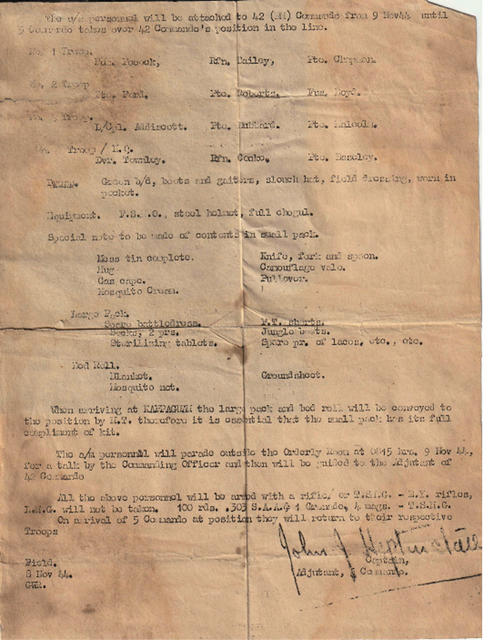 The u/m personnel will be attached to 42 (RM) Commando from 9 Nov 44 until
5 Commando takes over 42 Commando's position in the line.
No. 1 Troop.
Fus. Pocock, Rfn. Dailey, Pte. Chapman.
No. 2 Troop
Pte. Ford. Pte. Roberts. Fus. Boyd.
No. 3 Troop.
L/Cpl. Addiscott. Pte. Hubbard. Pte. Malcolm.
Troop / H.Q.
Dvr. Townley. Rfn. Cooke. Pte. Beazley.
Dress. Green b/d, boots and gaiters, slouch hat, field dressing, worn in
pocket.
Equipment. F.S.M.O., steel helmet, full chagul.
Special note to be made of contents in small pack.
Mess tin complete. Knife, fork and spoon.
Mug Camouflage veil.
Gas cape. Pullover.
Mosquito Cream.
Large Pack.
Spare battledress. P.T. shorts.
Socks, 2 prs. Jungle boots.
Sterilising tablets. Spare pr. of laces, etc., etc.
Bed Roll.
Blanket. Groundsheet.
Mosquito net.
When arriving at the large pack and bed roll will be conveyed to
the position by M.T. therefore it is essential that the small pack has its full
compliment of kit.
The a/m personnel will parade outside the Orderly Room at 0815 hrs. 9 Nov 44,
for a talk by the Commanding Officer and then will be guided to the Adjutant of
42 Commando
All the above personnel will be armed with a rifle/ or T.S.M.G. - E.Y. rifles,
L.M.G. will not be taken. 100 rds. .303 S.A.A. 1 Grenade, 4 mags. - T.S.M.G.
On arrival of 5 Comando at position they will return to their respective
Troops
John J Heptinstall
Captain,
Field. Adjutant, 5 Comando.
8 Nov 44.